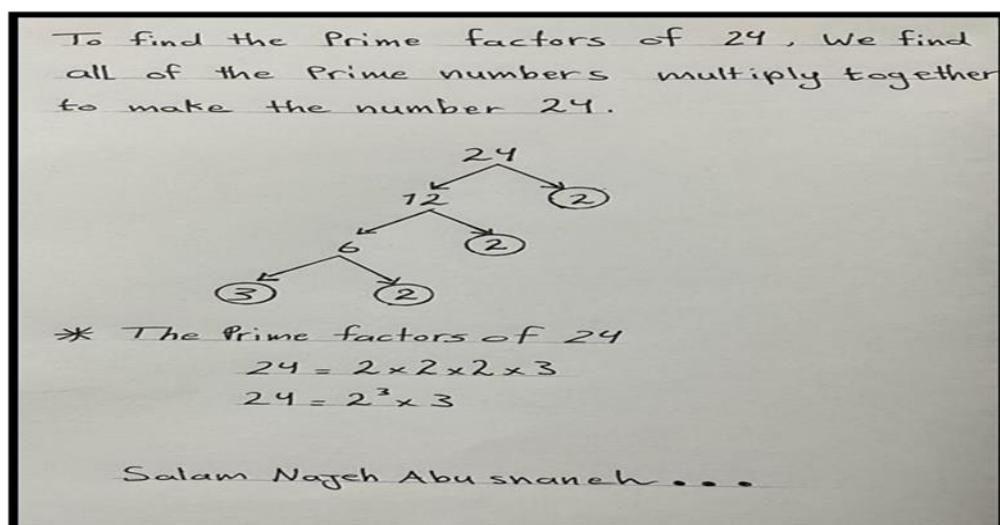 To find the Prime factors of 24, We find
all of the Prime numbers multiply together
to make the number 24.
24
12 2
6 2
3 2
* The Prime factors of 24
24 = 2 × 2 × 2 × 3
24 = 2³ × 3
Salam Najeh Abu snaneh...